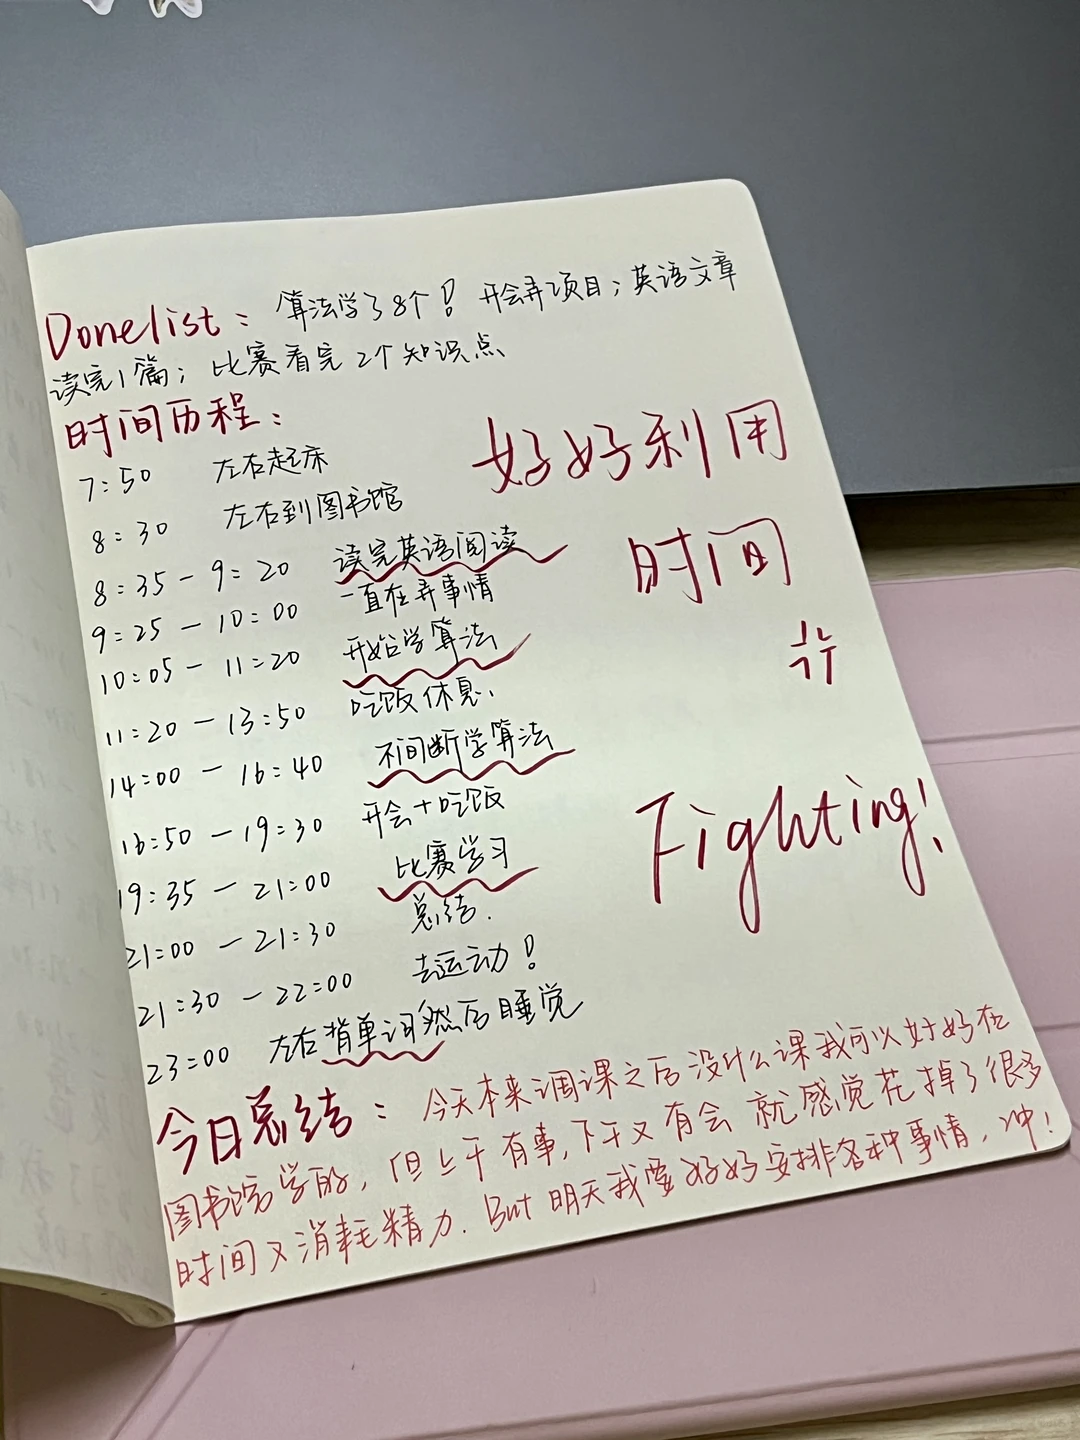 Donelist: 算法学了8个! 开会弄项目;英语文章
读完1篇; 比赛看完2个知识点
时间历程:
7:50 左右起床
8:30 左右到图书馆
8:35-9:20 读完英语阅读
9:25-10:00 一直在弄事情
10:05-11:20 开始学算法
11:20-13:50 吃饭休息、
14:00-16:40 不间断学算法
16:50-19:30 开会+吃饭
19:35-21:00 比赛学习
21:00-21:30 总结.
21:30-22:00 去运动!
23:00 左右背单词然后睡觉
好好利用
时间
Fighting!
今日总结: 今天本来调课之后没什么课我可以好好在
图书馆学的, 但上午有事,下午又有会 就感觉花掉了很多
时间又消耗精力. But 明天我要好好安排各种事情, 冲!